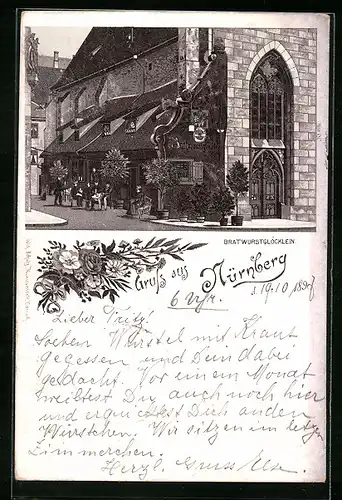 BRATWURSTGLÖCKLEIN
Gruß aus Nürnberg
6 Uhr. d. 19.10.189
Lieber Fritz!
Soeben Würstel mit Kraut
gegessen und Dein dabei
gedacht. Vor einem Monat
weiltest Du auch noch hier
und erquicktest Dich an den
Würstchen. Wir sitzen im letzt.
Zimmerchen.
Herzl. Gruss